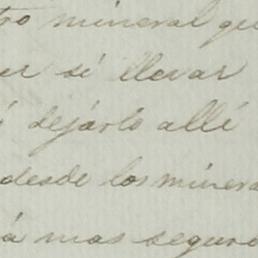 tro mineral qu
er si llevar
ó dejárlo allé
desde los minera
á mas seguro